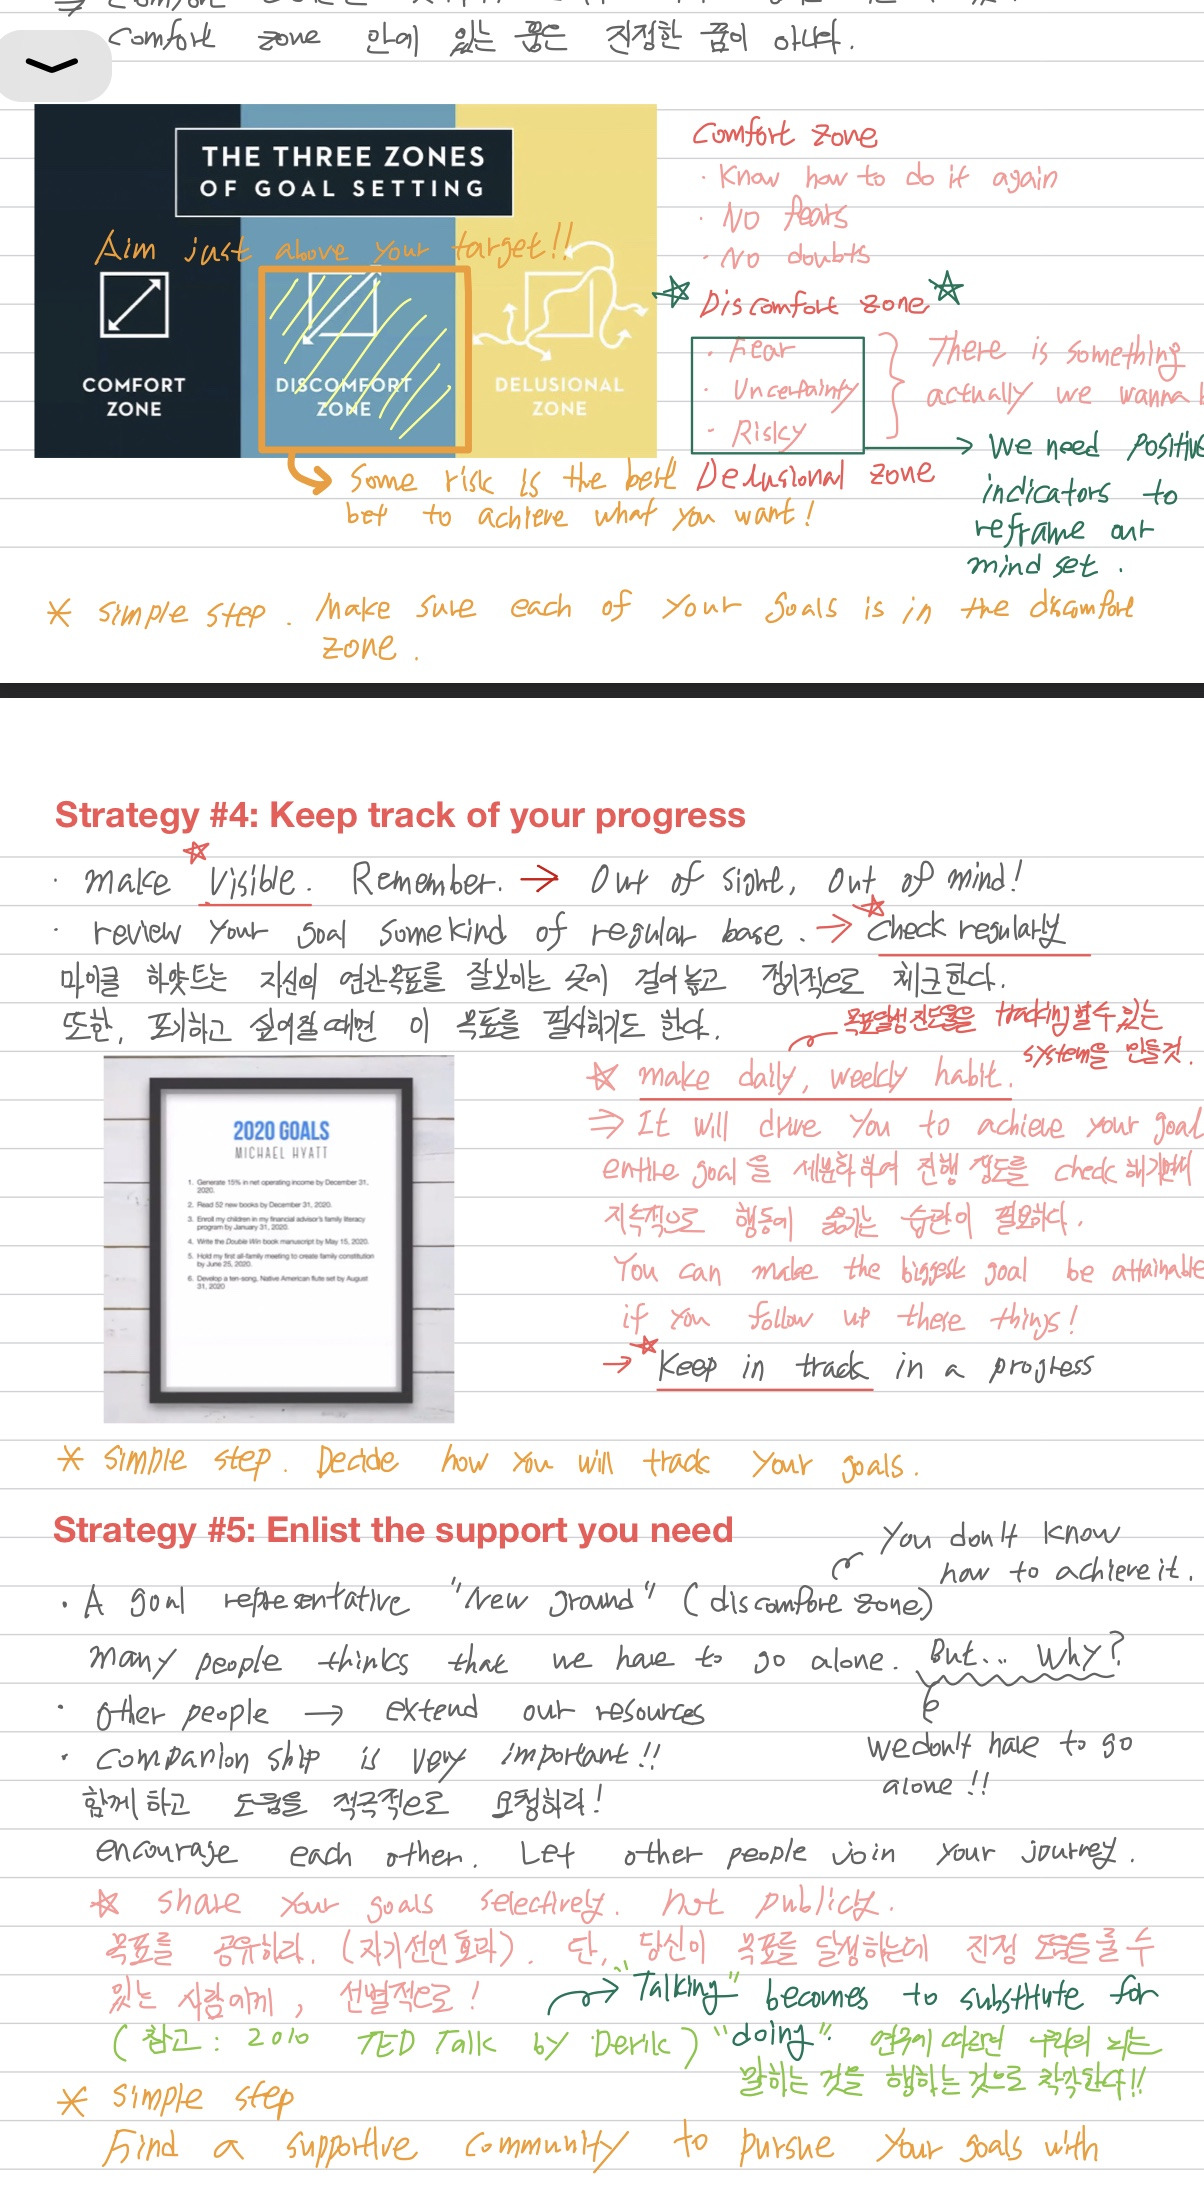 Comfort zone 안에 있는 꿈은 진정한 꿈이 아니다.
THE THREE ZONES
OF GOAL SETTING
Aim just above your target!!
COMFORT
ZONE
DISCOMFORT
ZONE
DELUSIONAL
ZONE
Comfort zone
· Know how to do it again
· No fears
· No doubts
☆ Discomfort zone ☆
· Fear
· Uncertainty
· Risky
There is something
actually we wanna
We need positive
indicators to
reframe our
mind set.
Delusional zone
Some risk is the best
bet to achieve what you want!
* Simple step. Make sure each of your goals is in the discomfort
zone.
Strategy #4: Keep track of your progress
· make visible. Remember. → Out of sight, Out of mind!
· review your goal somekind of regular base. → Check regularly
마이클 하얏트는 자신의 연간목표를 잘보이는 곳에 걸어놓고 정기적으로 체크한다.
또한, 포기하고 싶어질때면 이 목표를 필사하기도 한다.
목표달성 진도율을 tracking할수 있는
system을 만들것.
☆ make daily, weekly habit.
⇒ It will drive you to achieve your goal
entire goal을 세분화하여 진행 정도를 check 해가면서
지속적으로 행동에 옮기는 습관이 필요하다.
You can make the biggest goal be attainable
if you follow up these things!
→ ☆ Keep in track in a progress
2020 GOALS
MICHAEL HYATT
1. Generate 15% in net operating income by December 31,
2020.
2. Read 52 new books by December 31, 2020.
3. Enroll my children in my financial advisor's family literacy
program by January 31, 2020.
4. Write the Double Win book manuscript by May 15, 2020.
5. Hold my first all-family meeting to create family constitution
by June 25, 2020.
6. Develop a ten-song, Native American flute set by August
31, 2020
* Simple step. Decide how you will track your goals.
Strategy #5: Enlist the support you need
You don't know
how to achieve it.
· A goal representative "New ground" (discomfort zone)
many people thinks that we have to go alone. But... Why?
· Other people → extend our resources
· Companion ship is very important!!
we don't have to go
alone!!
함께하고 도움을 적극적으로 요청하라!
encourage each other. Let other people join your journey.
☆ share your goals selectively. not publicly.
목표를 공유하라. (자기선언효과). 단, 당신이 목표를 달성하는데 진정 도움을 줄 수
있는 사람에게, 선별적으로!
"Talking" becomes to substitute for
"doing".
(참고: 2010 TED Talk by Derik)
연구에 따르면 우리의 뇌는
말하는 것을 행하는 것으로 착각한다!!
* Simple step
Find a supportive community to pursue your goals with